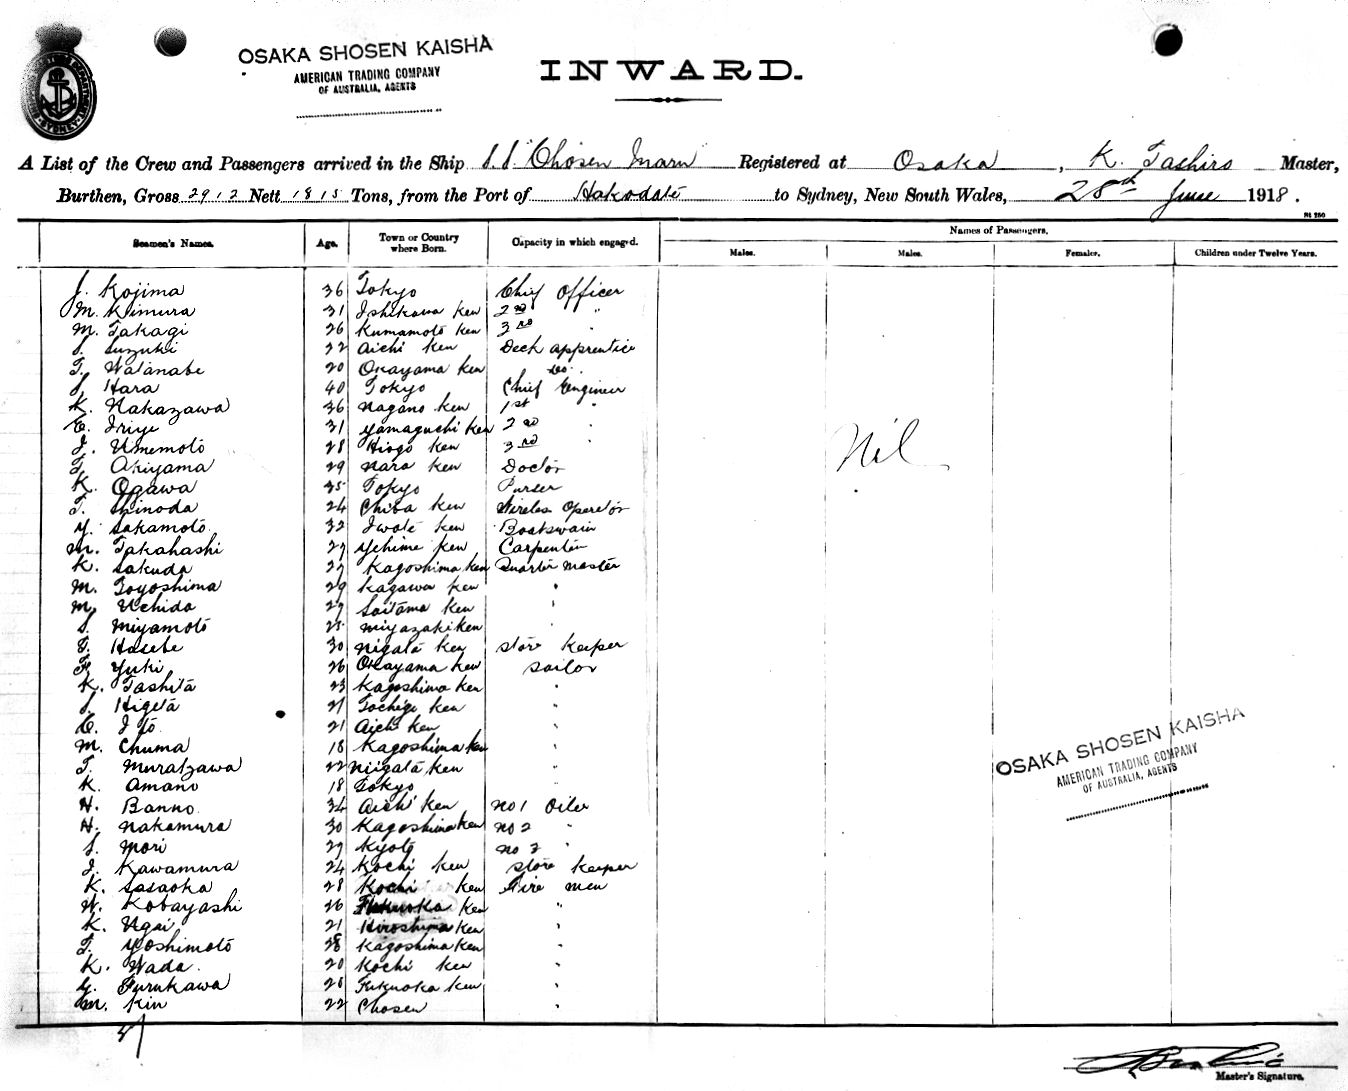 OSAKA SHOSEN KAISHA
AMERICAN TRADING COMPANY
OF AUSTRALIA, AGENTS
INWARD.
A List of the Crew and Passengers arrived in the Ship S.S. "Chosen Maru" Registered at Osaka, K. Tashiro Master,
Burthen, Gross 2912 Nett 1815 Tons, from the Port of Hakodate to Sydney, New South Wales, 28th June 1918.
Seamen's Names. Age. Town or Country where Born. Capacity in which engaged. Names of Passengers.
Males. Males. Females. Children under Twelve Years.
J. Kojima 36 Tokyo Chief Officer
M. Kimura 31 Ishikawa Ken 2nd "
M. Takagi 26 Kumamoto Ken 3rd "
S. Suzuki 22 Aichi Ken Deck apprentice
T. Watanabe 20 Okayama Ken Do.
S. Hara 40 Tokyo Chief Engineer
K. Nakazawa 36 Nagano Ken 1st "
E. Iriye 31 Yamaguchi Ken 2nd "
J. Umemoto 28 Hiogo Ken 3rd "
T. Akiyama 29 Nara Ken Doctor
Nil
K. Ogawa 35 Tokyo Purser
T. Shinoda 24 Chiba Ken Wireless Operator
Y. Sakamoto 32 Iwate Ken Boatswain
M. Takahashi 27 Yehime Ken Carpenter
K. Sakuda 27 Kagoshima Ken Quarter Master
M. Toyoshima 29 Kagawa Ken "
M. Uchida 27 Saitama Ken "
S. Miyamoto 25 Miyazaki Ken "
T. Hasebe 30 Nigata Ken Store Keeper
F. Yuki 26 Okayama Ken Sailor
K. Tashita 23 Kagoshima Ken "
S. Higeta 21 Tochigi Ken "
C. Ito 21 Aichi Ken "
M. Chuma 18 Kagoshima Ken "
T. Muratzawa 22 Niigata Ken "
K. Amano 18 Tokyo "
H. Banno 34 Aichi Ken No 1 Oiler
H. Nakamura 30 Kagoshima Ken No 2 "
S. Mori 27 Kyoto No 3 "
J. Kawamura 24 Kochi Ken Store Keeper
K. Sasaoka 28 Kochi Ken Fire men
W. Kobayashi 26 Fukuoka Ken "
K. Ugai 21 Hiroshima Ken "
T. Yoshimoto 28 Kagoshima Ken "
K. Wada 20 Kochi Ken "
G. Furukawa 20 Fukuoka Ken "
M. Kin 22 Chosen "
OSAKA SHOSEN KAISHA
AMERICAN TRADING COMPANY
OF AUSTRALIA, AGENTS
Master's Signature.